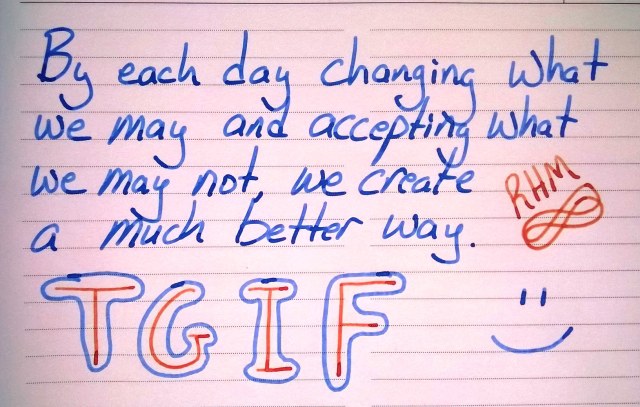 By each day changing what
we may and accepting what
we may not, we create
a much better way.
RHM
TGIF